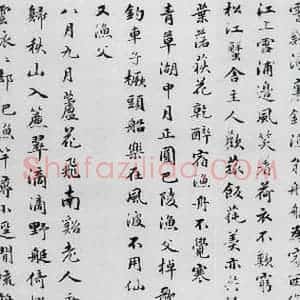 江上雪浦邊風笑著荷衣不歎窮
松江蟹舍主人歡菰飯蓴羹亦共
葉落荻花乾醉宿漁舟不覺寒
青草湖中月正圓巴陵漁父棹歌
釣車子橛頭船樂在風波不用仙
又漁父
八月九月蘆花飛南谿老人
歸秋山入簾翠滴滴野艇倚
卻把漁竿尋小徑閒梳
Shufaziliao.COM